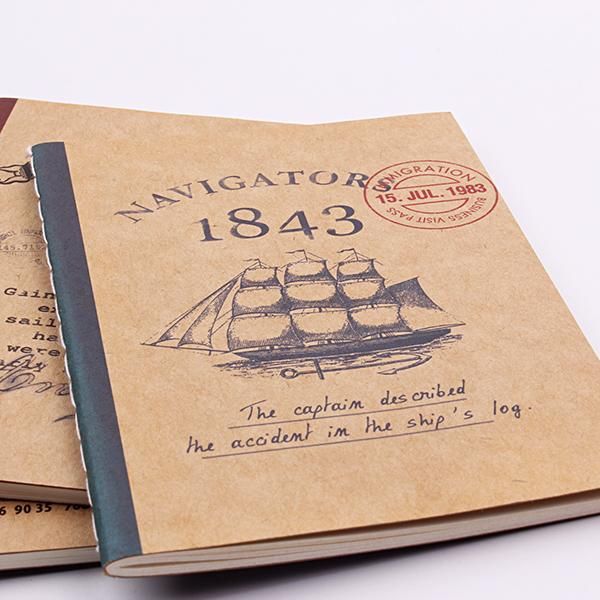 NAVIGATORS
1843
IMMIGRATION
15. JUL. 1983
BUSINESS VISIT PASS
The captain described
the accident in the ship's log.
145.710
Gain
sail
ha
were
6 90 35